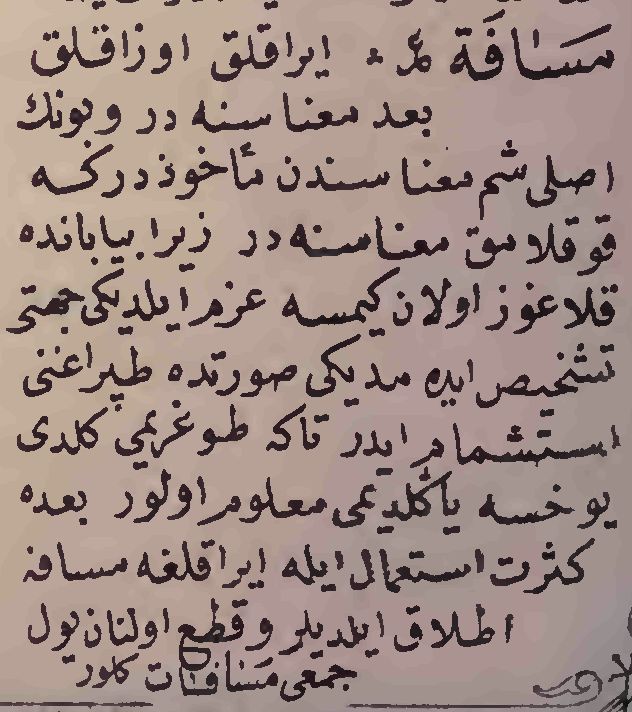 مَسَافَة عر. ايراقلق اوزاقلق
بعد معناسنه در وبونك
اصلی شم معناسندن مأخوذدركه
قوقلامق معناسنه در زیرا بیابانده
قلاغوز اولان كیمسه عزم ایلدیكی جهتی
تشخیص ایده مدیكی صورتده طپراغنی
استشمام ایدر تاكه طوغریمی كلدی
یوخسه یاكلدیمی معلوم اولور بعده
كثرت استعمال ایله ایراقلغه مسافه
اطلاق ایلدیلر وقطع اولنان یول
جمعی مَسَافَات كلور